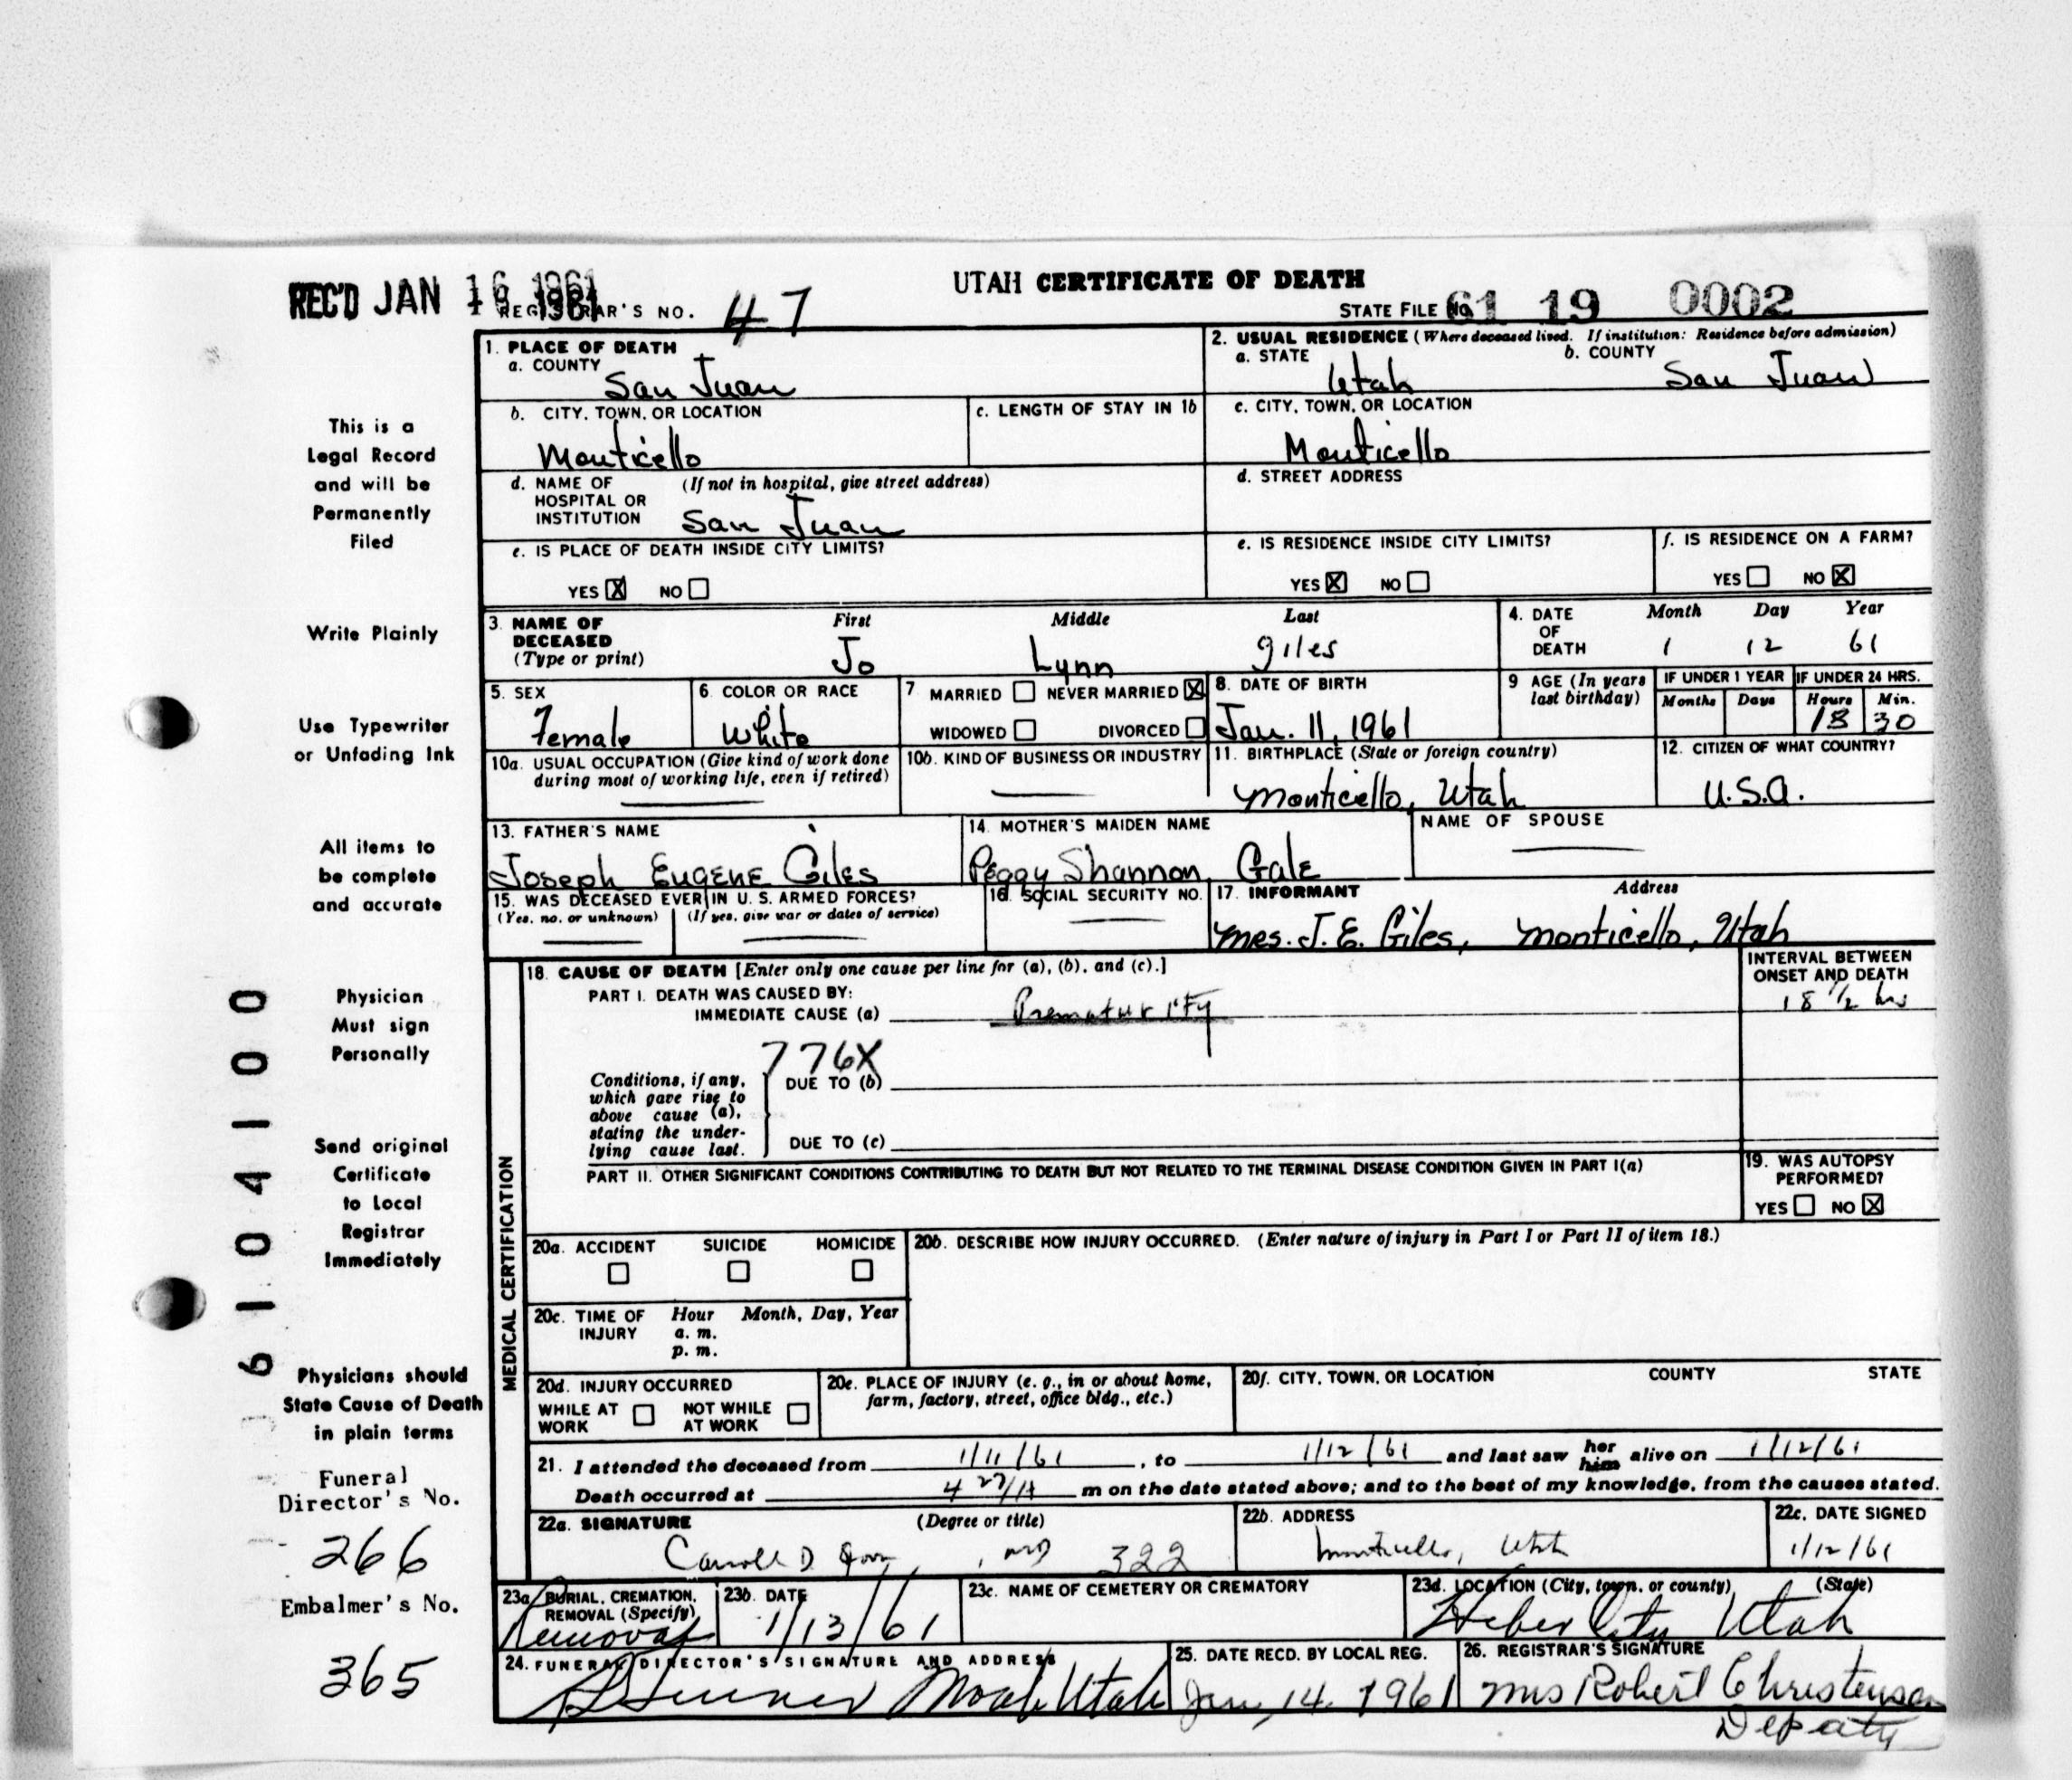 REC'D JAN 16 1961
UTAH CERTIFICATE OF DEATH
REGISTRAR'S NO. 47
STATE FILE No. 61 19 0002
1. PLACE OF DEATH
a. COUNTY
San Juan
2. USUAL RESIDENCE (Where deceased lived. If institution: Residence before admission)
a. STATE b. COUNTY
Utah San Juan
b. CITY, TOWN, OR LOCATION
Monticello
c. LENGTH OF STAY IN 1b
c. CITY, TOWN, OR LOCATION
Monticello
d. NAME OF (If not in hospital, give street address)
HOSPITAL OR
INSTITUTION San Juan
d. STREET ADDRESS
e. IS PLACE OF DEATH INSIDE CITY LIMITS?
YES X NO
e. IS RESIDENCE INSIDE CITY LIMITS?
YES X NO
f. IS RESIDENCE ON A FARM?
YES NO X
3. NAME OF First Middle Last
DECEASED
(Type or print) Jo Lynn Giles
4. DATE Month Day Year
OF
DEATH 1 12 61
5. SEX
Female
6. COLOR OR RACE
White
7. MARRIED NEVER MARRIED X
WIDOWED DIVORCED
8. DATE OF BIRTH
Jan. 11, 1961
9 AGE (In years
last birthday)
IF UNDER 1 YEAR
Months Days
IF UNDER 24 HRS.
Hours Min.
18 30
10a. USUAL OCCUPATION (Give kind of work done
during most of working life, even if retired)
10b. KIND OF BUSINESS OR INDUSTRY
11. BIRTHPLACE (State or foreign country)
Monticello, Utah
12. CITIZEN OF WHAT COUNTRY?
U.S.A.
13. FATHER'S NAME
Joseph Eugene Giles
14. MOTHER'S MAIDEN NAME
Peggy Shannon Gale
NAME OF SPOUSE
15. WAS DECEASED EVER IN U. S. ARMED FORCES?
(Yes, no, or unknown) (If yes, give war or dates of service)
16. SOCIAL SECURITY NO.
17. INFORMANT Address
Mrs. J. E. Giles, Monticello, Utah
MEDICAL CERTIFICATION
18. CAUSE OF DEATH [Enter only one cause per line for (a), (b), and (c).]
PART I. DEATH WAS CAUSED BY:
IMMEDIATE CAUSE (a) Prematurity
INTERVAL BETWEEN
ONSET AND DEATH
18 1/2 hrs
776X
Conditions, if any,
which gave rise to
above cause (a),
stating the under-
lying cause last.
DUE TO (b)
DUE TO (c)
PART II. OTHER SIGNIFICANT CONDITIONS CONTRIBUTING TO DEATH BUT NOT RELATED TO THE TERMINAL DISEASE CONDITION GIVEN IN PART I(a)
19. WAS AUTOPSY
PERFORMED?
YES NO X
20a. ACCIDENT SUICIDE HOMICIDE
20b. DESCRIBE HOW INJURY OCCURRED. (Enter nature of injury in Part I or Part II of item 18.)
20c. TIME OF Hour Month, Day, Year
INJURY a. m.
p. m.
20d. INJURY OCCURRED
WHILE AT NOT WHILE
WORK AT WORK
20e. PLACE OF INJURY (e. g., in or about home,
farm, factory, street, office bldg., etc.)
20f. CITY, TOWN, OR LOCATION COUNTY STATE
21. I attended the deceased from 1/11/61, to 1/12/61 and last saw her him alive on 1/12/61
Death occurred at 4 m on the date stated above; and to the best of my knowledge, from the causes stated.
22a. SIGNATURE (Degree or title)
Carroll D , MD 322
22b. ADDRESS
Monticello, Utah
22c. DATE SIGNED
1/12/61
23a. BURIAL, CREMATION,
REMOVAL (Specify)
Removal
23b. DATE
1/13/61
23c. NAME OF CEMETERY OR CREMATORY
23d. LOCATION (City, town, or county) (State)
Heber City Utah
24. FUNERAL DIRECTOR'S SIGNATURE AND ADDRESS
Moab Utah
25. DATE RECD. BY LOCAL REG.
Jan. 14. 1961
26. REGISTRAR'S SIGNATURE
Mrs Robert Christensen
Deputy
This is a
Legal Record
and will be
Permanently
Filed
Write Plainly
Use Typewriter
or Unfading Ink
All items to
be complete
and accurate
Physician
Must sign
Personally
Send original
Certificate
to Local
Registrar
Immediately
Physicians should
State Cause of Death
in plain terms
Funeral
Director's No.
266
Embalmer's No.
365
6104100